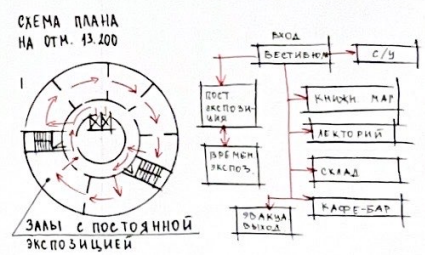 СХЕМА ПЛАНА
НА ОТМ. 13.200
ЗАЛЫ С ПОСТОЯННОЙ
ЭКСПОЗИЦИЕЙ
ВХОД
ВЕСТИБЮЛ
С/У
ПОСТ
ЭКСПОЗИ-
ЦИЯ
ВРЕМЕН
ЭКСПОЗ.
КНИЖН. МАГ
ЛЕКТОРИЙ
СКЛАД
КАФЕ-БАР
ЭВАКУА
ВЫХОД